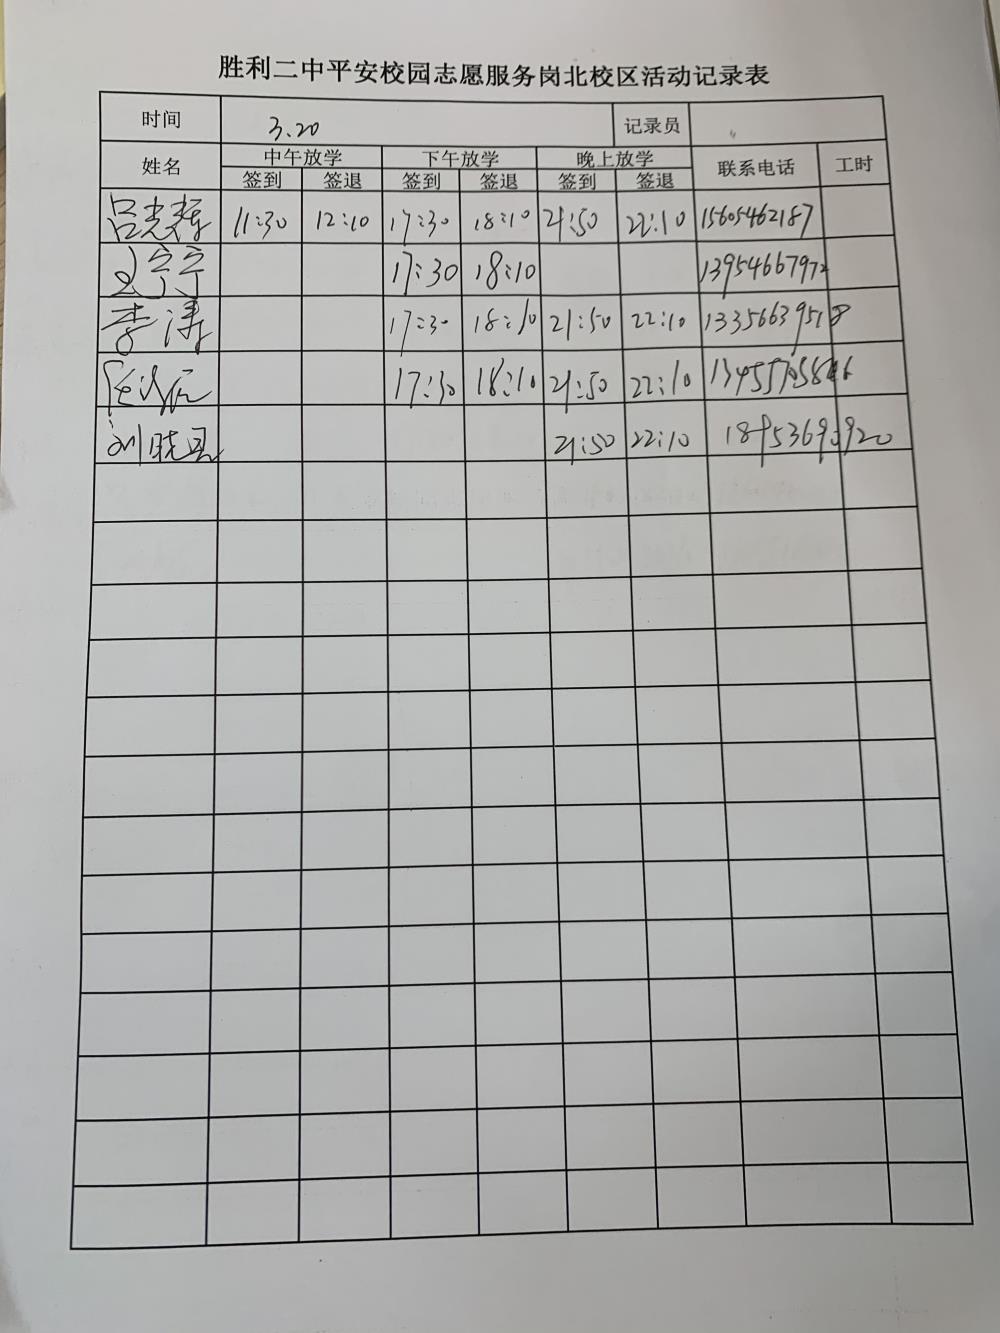 胜利二中平安校园志愿服务岗北校区活动记录表
时间 3.20 记录员
姓名 中午放学 下午放学 晚上放学 联系电话 工时
签到 签退 签到 签退 签到 签退
11:30 12:10 17:30 18:10 21:50 22:10 15605462187
王宁宁 17:30 18:10 13954667972
李涛 17:30 18:10 21:50 22:10 13356639518
17:30 18:10 21:50 22:10
刘晓 21:50 22:10